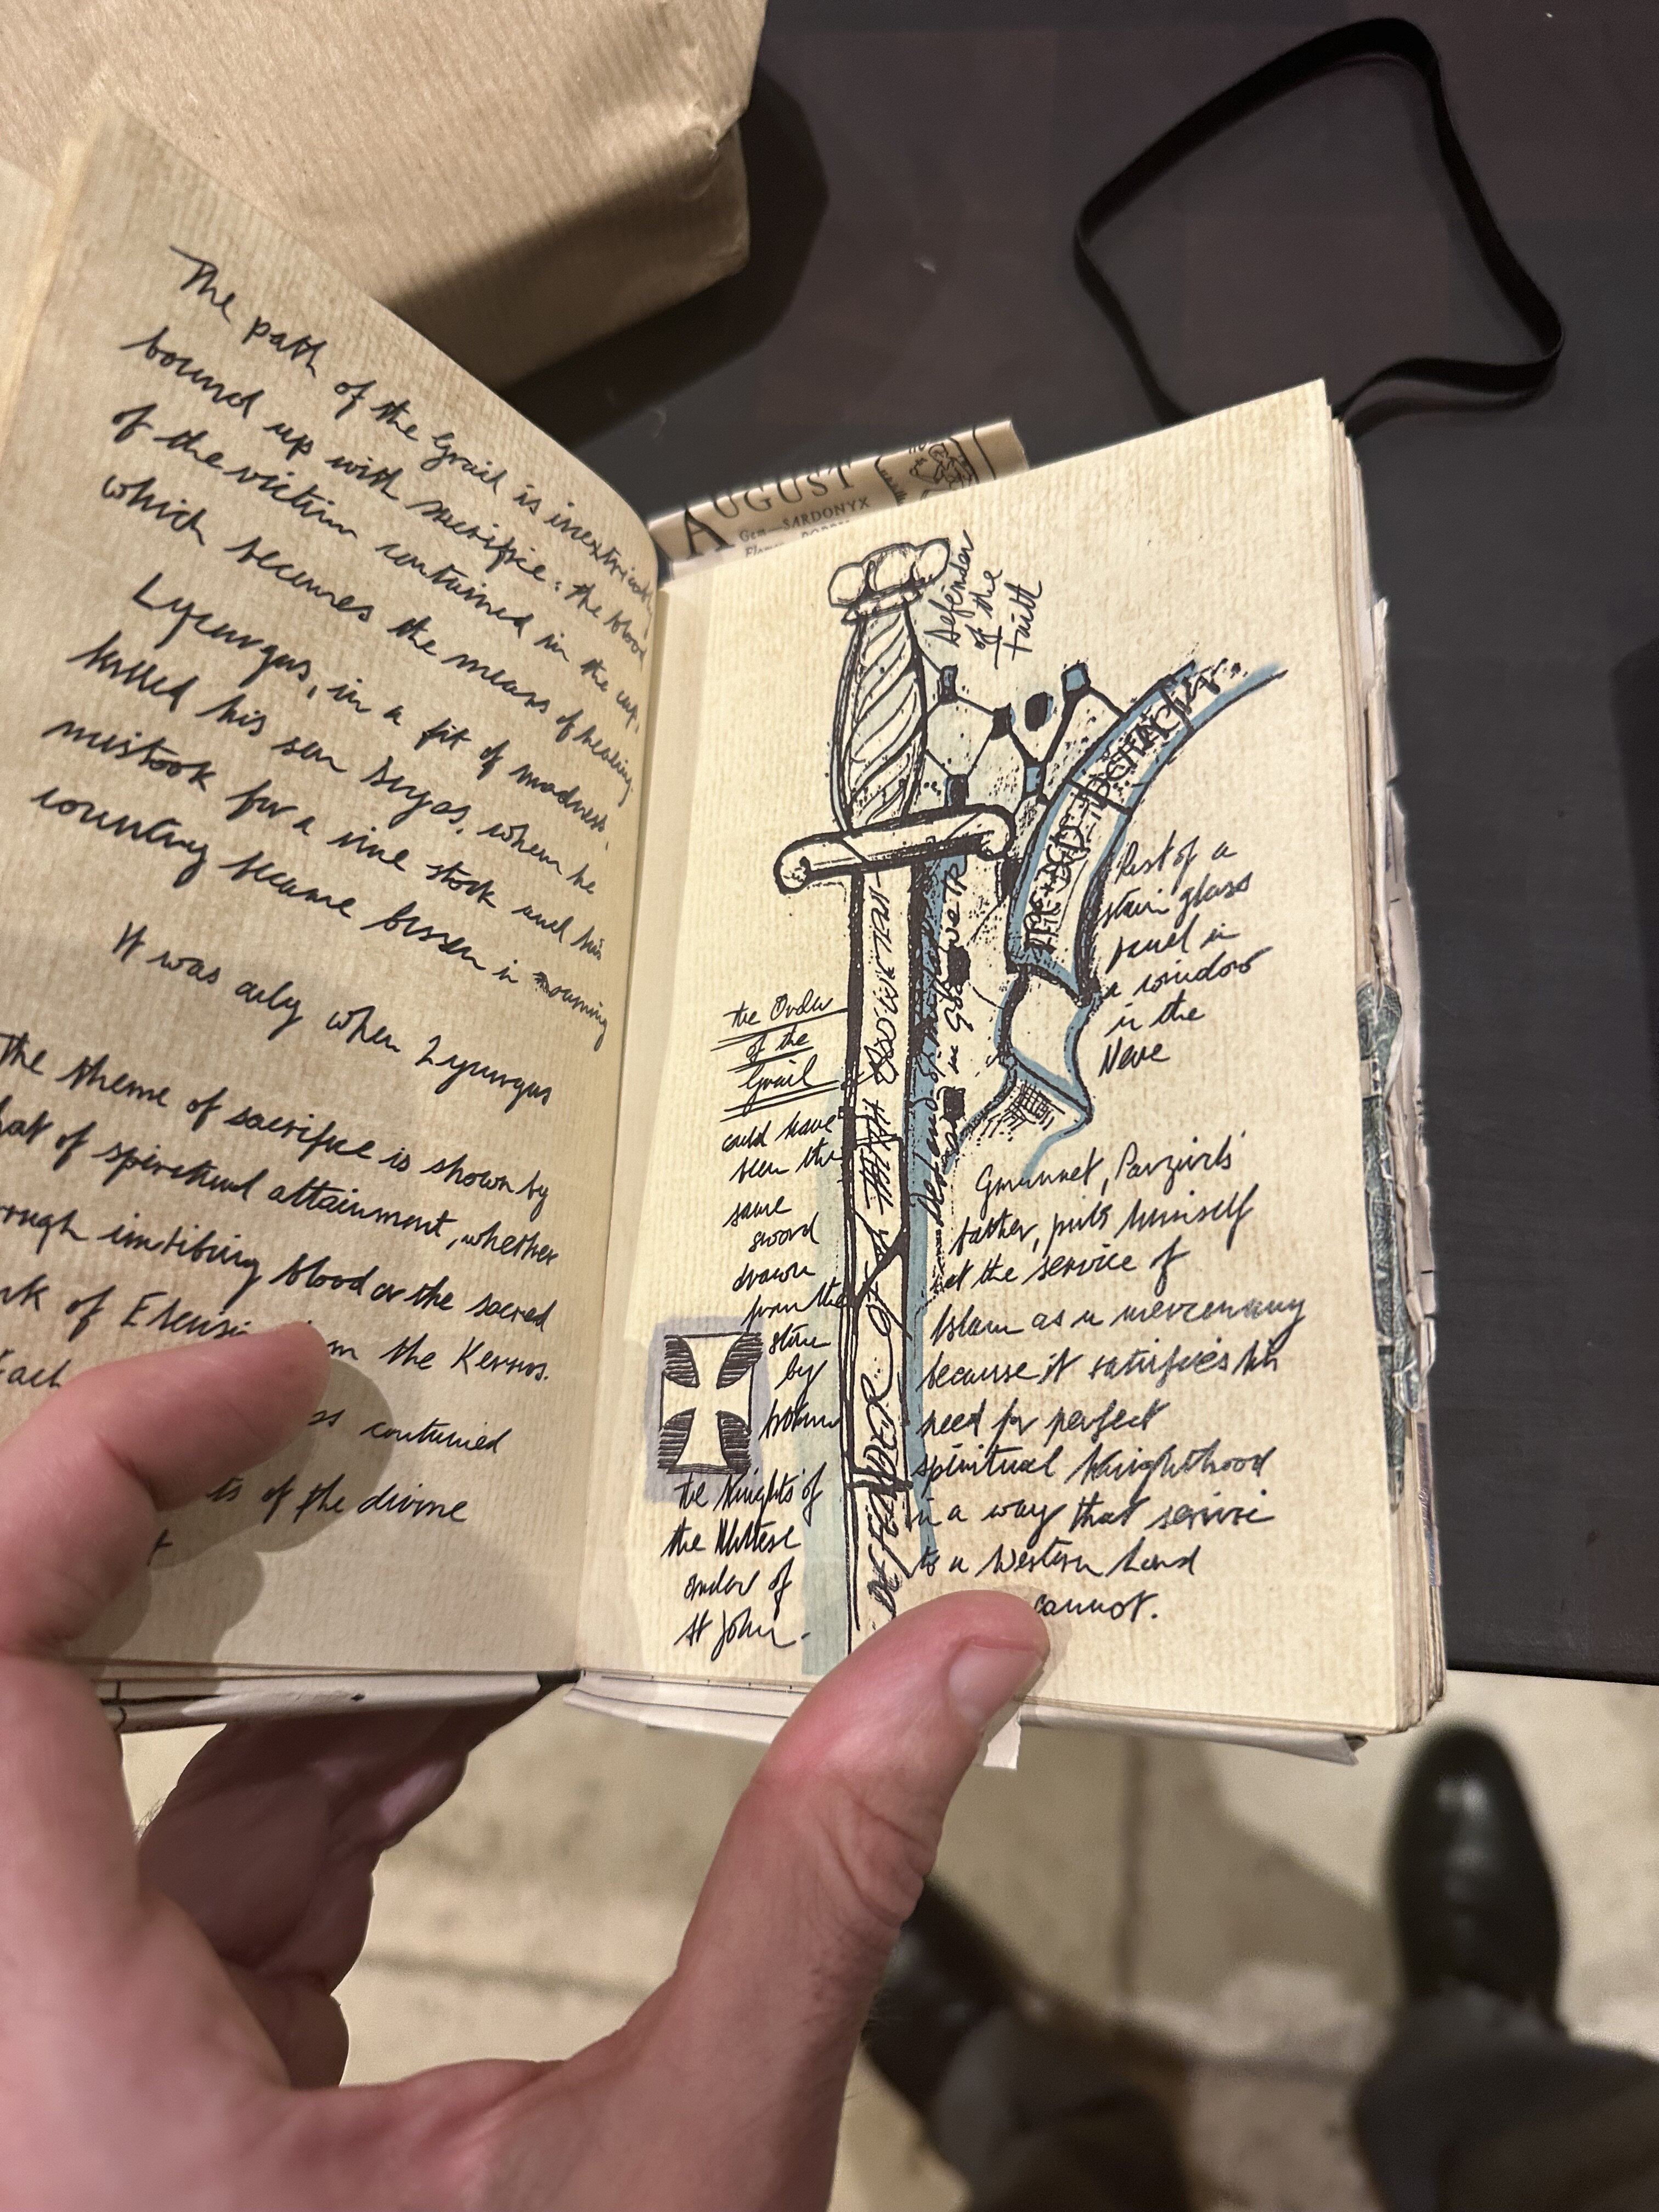 The path of the Grail is inextricably
bound up with sacrifice: the blood
of the victim contained in the cup,
which becomes the means of healing.
Lycurgus, in a fit of madness,
killed his son Dryas, whom he
mistook for a vine stock and his
country became barren in mourning
It was only when Lycurgus
The theme of sacrifice is shown by
of spiritual attainment, whether
imbibing blood or the sacred
of in the Kernos.
contained
of the divine
AUGUST
Gem—SARDONYX
Defender
of the
Faith
Part of a
stain glass
panel in
a window
in the
Nave
the Order
of the
Grail
could have
been the
same
sword
drawn
from the
stone
by
the Knights of
the Maltese
order of
St John.
DEFENDER OF THE FAITH
Gmunnet, Parzivils
father, puts himself
at the service of
Islam as a mercenary
because it satisfies his
need for perfect
spiritual Knighthood
in a way that service
to a Western Lord
cannot.